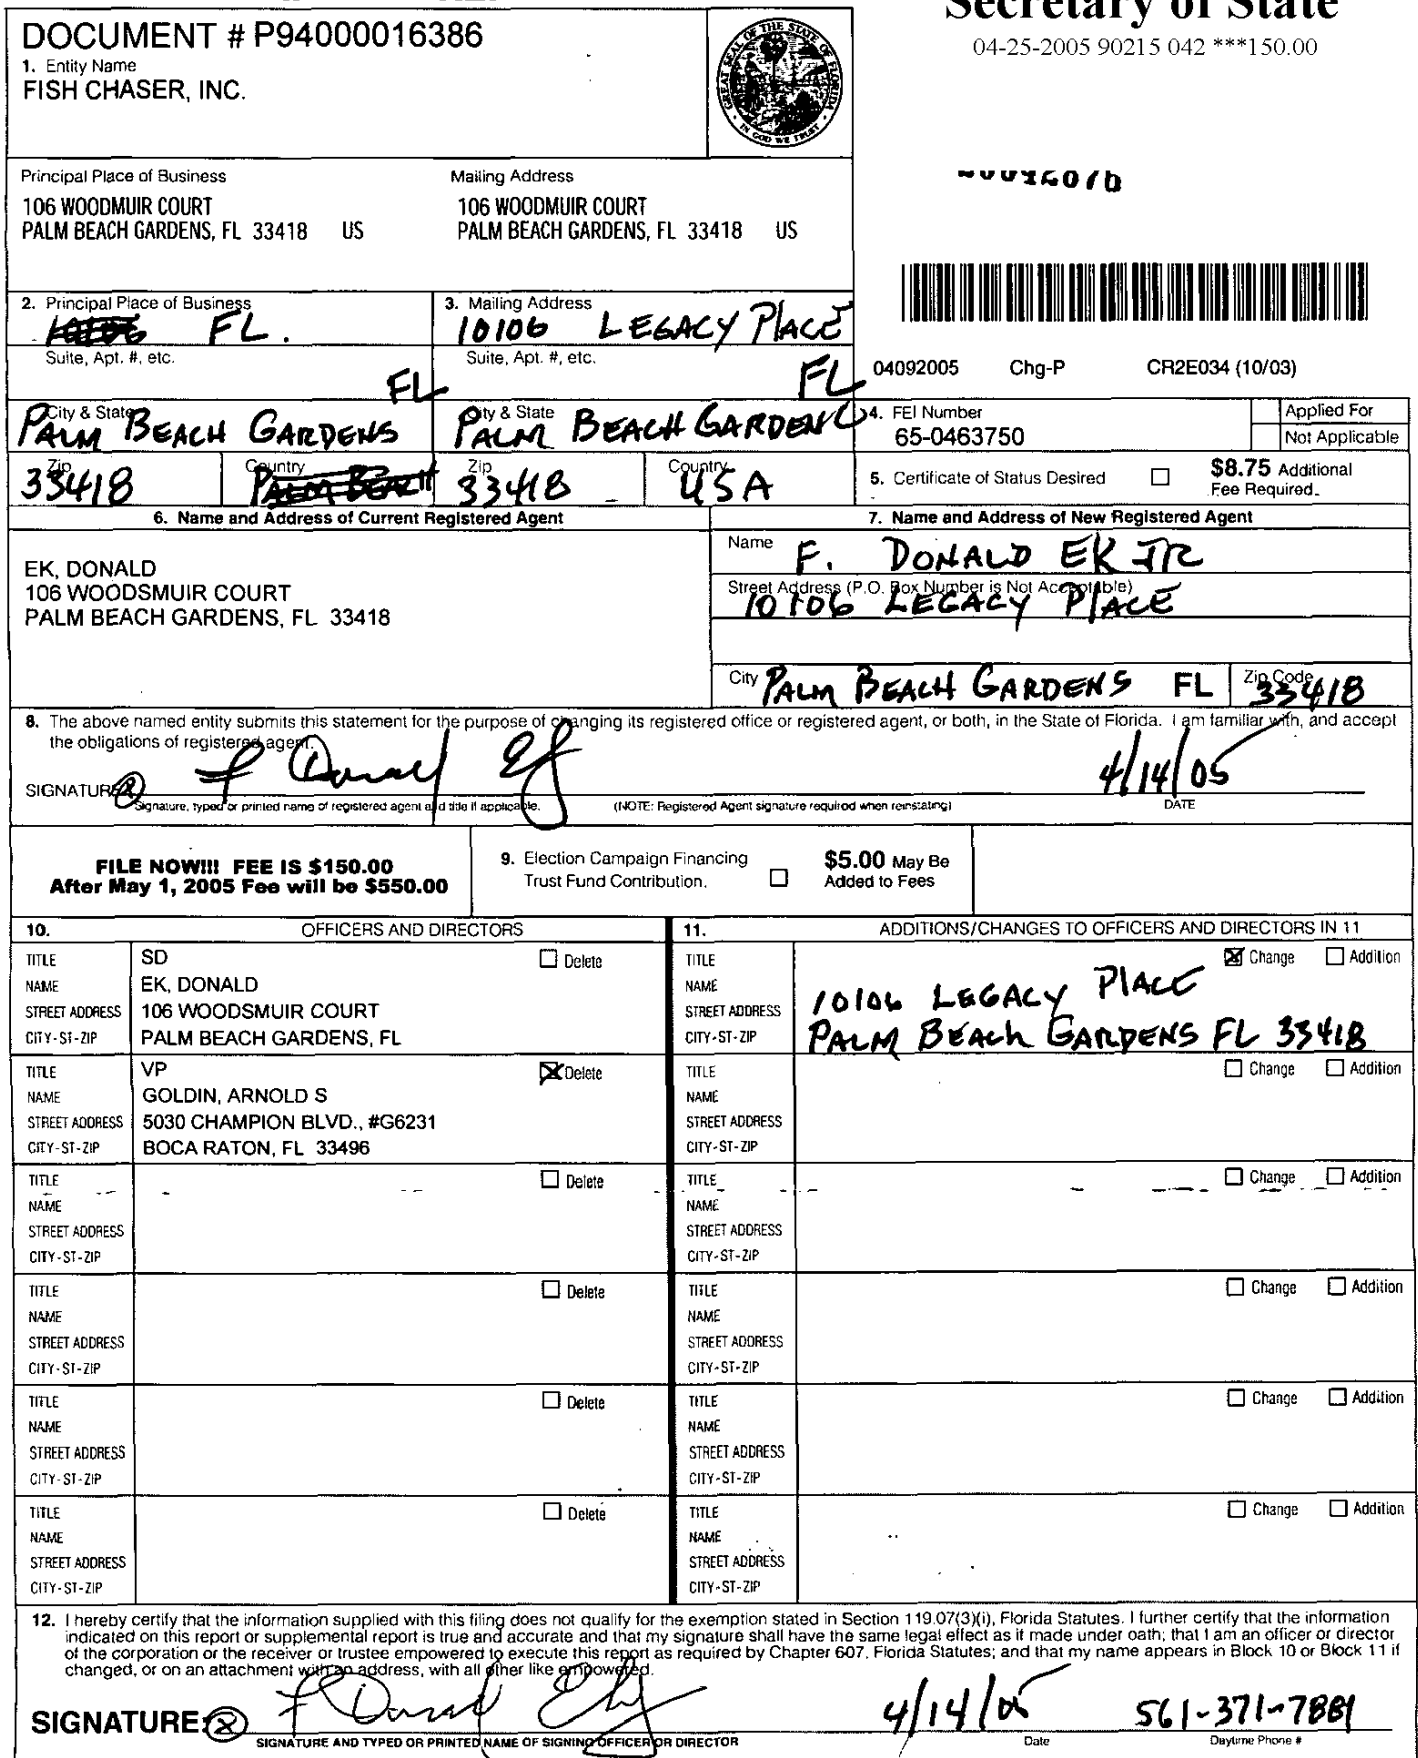 Secretary of State
04-25-2005 90215 042 ***150.00
DOCUMENT # P94000016386
1. Entity Name
FISH CHASER, INC.
GREAT SEAL OF THE STATE OF FLORIDA
IN GOD WE TRUST
Principal Place of Business
106 WOODMUIR COURT
PALM BEACH GARDENS, FL 33418 US
Mailing Address
106 WOODMUIR COURT
PALM BEACH GARDENS, FL 33418 US
2. Principal Place of Business
FL.
Suite, Apt. #, etc.
FL
City & State
PALM BEACH GARDENS
Zip
33418
Country
PALM BEACH
3. Mailing Address
10106 LEGACY PLACE
Suite, Apt. #, etc.
FL
City & State
PALM BEACH GARDENS
Zip
33418
Country
USA
04092005 Chg-P CR2E034 (10/03)
4. FEI Number
65-0463750
Applied For
Not Applicable
5. Certificate of Status Desired
$8.75 Additional
Fee Required
6. Name and Address of Current Registered Agent
EK, DONALD
106 WOODSMUIR COURT
PALM BEACH GARDENS, FL 33418
7. Name and Address of New Registered Agent
Name F. DONALD EK JR
Street Address (P.O. Box Number is Not Acceptable)
10106 LEGACY PLACE
City PALM BEACH GARDENS FL Zip Code 33418
8. The above named entity submits this statement for the purpose of changing its registered office or registered agent, or both, in the State of Florida. I am familiar with, and accept
the obligations of registered agent.
SIGNATURE F Donald Ek 4/14/05
Signature, typed or printed name of registered agent and title if applicable. (NOTE: Registered Agent signature required when reinstating) DATE
FILE NOW!!! FEE IS $150.00
After May 1, 2005 Fee will be $550.00
9. Election Campaign Financing
Trust Fund Contribution.
$5.00 May Be
Added to Fees
10. OFFICERS AND DIRECTORS
11. ADDITIONS/CHANGES TO OFFICERS AND DIRECTORS IN 11
TITLE SD Delete
NAME EK, DONALD
STREET ADDRESS 106 WOODSMUIR COURT
CITY-ST-ZIP PALM BEACH GARDENS, FL
TITLE Change Addition
NAME
STREET ADDRESS 10106 LEGACY PLACE
CITY-ST-ZIP PALM BEACH GARDENS FL 33418
TITLE VP Delete
NAME GOLDIN, ARNOLD S
STREET ADDRESS 5030 CHAMPION BLVD., #G6231
CITY-ST-ZIP BOCA RATON, FL 33496
TITLE Change Addition
NAME
STREET ADDRESS
CITY-ST-ZIP
TITLE Delete
NAME
STREET ADDRESS
CITY-ST-ZIP
TITLE Change Addition
NAME
STREET ADDRESS
CITY-ST-ZIP
TITLE Delete
NAME
STREET ADDRESS
CITY-ST-ZIP
TITLE Change Addition
NAME
STREET ADDRESS
CITY-ST-ZIP
TITLE Delete
NAME
STREET ADDRESS
CITY-ST-ZIP
TITLE Change Addition
NAME
STREET ADDRESS
CITY-ST-ZIP
TITLE Delete
NAME
STREET ADDRESS
CITY-ST-ZIP
TITLE Change Addition
NAME
STREET ADDRESS
CITY-ST-ZIP
12. I hereby certify that the information supplied with this filing does not qualify for the exemption stated in Section 119.07(3)(i), Florida Statutes. I further certify that the information
indicated on this report or supplemental report is true and accurate and that my signature shall have the same legal effect as if made under oath; that I am an officer or director
of the corporation or the receiver or trustee empowered to execute this report as required by Chapter 607, Florida Statutes; and that my name appears in Block 10 or Block 11 if
changed, or on an attachment with an address, with all other like empowered.
SIGNATURE: F Donald Ek 4/14/05 561-371-7881
SIGNATURE AND TYPED OR PRINTED NAME OF SIGNING OFFICER OR DIRECTOR Date Daytime Phone #